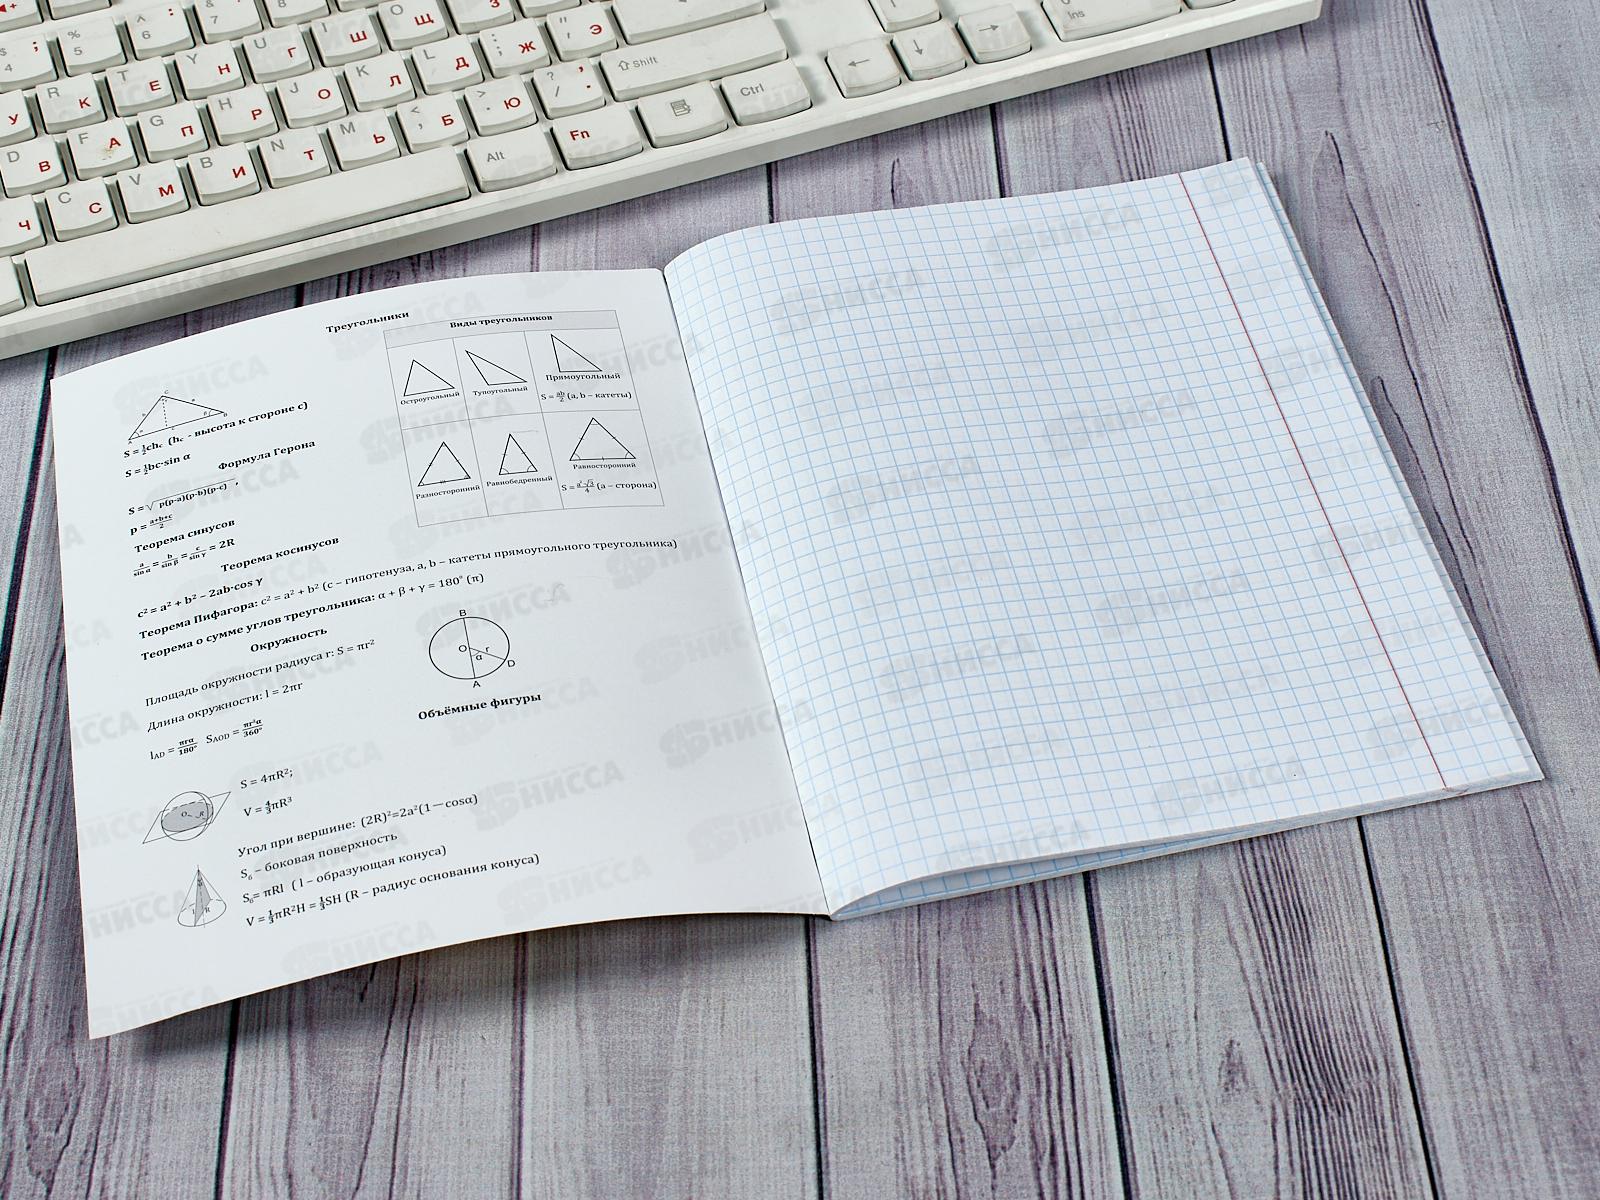 Треугольники
Виды треугольников
Остроугольный
Тупоугольный
Прямоугольный
S = ab/2 (a, b – катеты)
Разносторонний
Равнобедренный
Равносторонний
S = a²√3/4 (a – сторона)
S = ½chc (hc - высота к стороне c)
S = ½bc·sin α
Формула Герона
S = √p(p-a)(p-b)(p-c) ,
p = a+b+c/2
Теорема синусов
a/sin α = b/sin β = c/sin γ = 2R
Теорема косинусов
c² = a² + b² – 2ab·cos γ
Теорема Пифагора: c² = a² + b² (c – гипотенуза, a, b – катеты прямоугольного треугольника)
Теорема о сумме углов треугольника: α + β + γ = 180° (π)
Окружность
Площадь окружности радиуса r: S = πr²
Длина окружности: l = 2πr
lAD = πrα/180° SAOD = πr²α/360°
B
O
r
α
D
A
Объёмные фигуры
S = 4πR²;
V = 4/3πR³
Угол при вершине: (2R)²=2a²(1—cosα)
Sб – боковая поверхность
Sб= πRl ( l – образующая конуса)
V = ⅓πR²H = ⅓SH (R – радиус основания конуса)
% 5
^ 6
& 7
R К
T Е
Y Н
U Г
I Ш
O Щ
D В
F А
G П
H Р
J О
K Л
L Д
Ж
Э
C С
V М
B И
N Т
M Ь
< , Б
> . Ю
? / , .
Shift
Alt
Fn
Ctrl
0 Ins
← ↓ →
НИССА